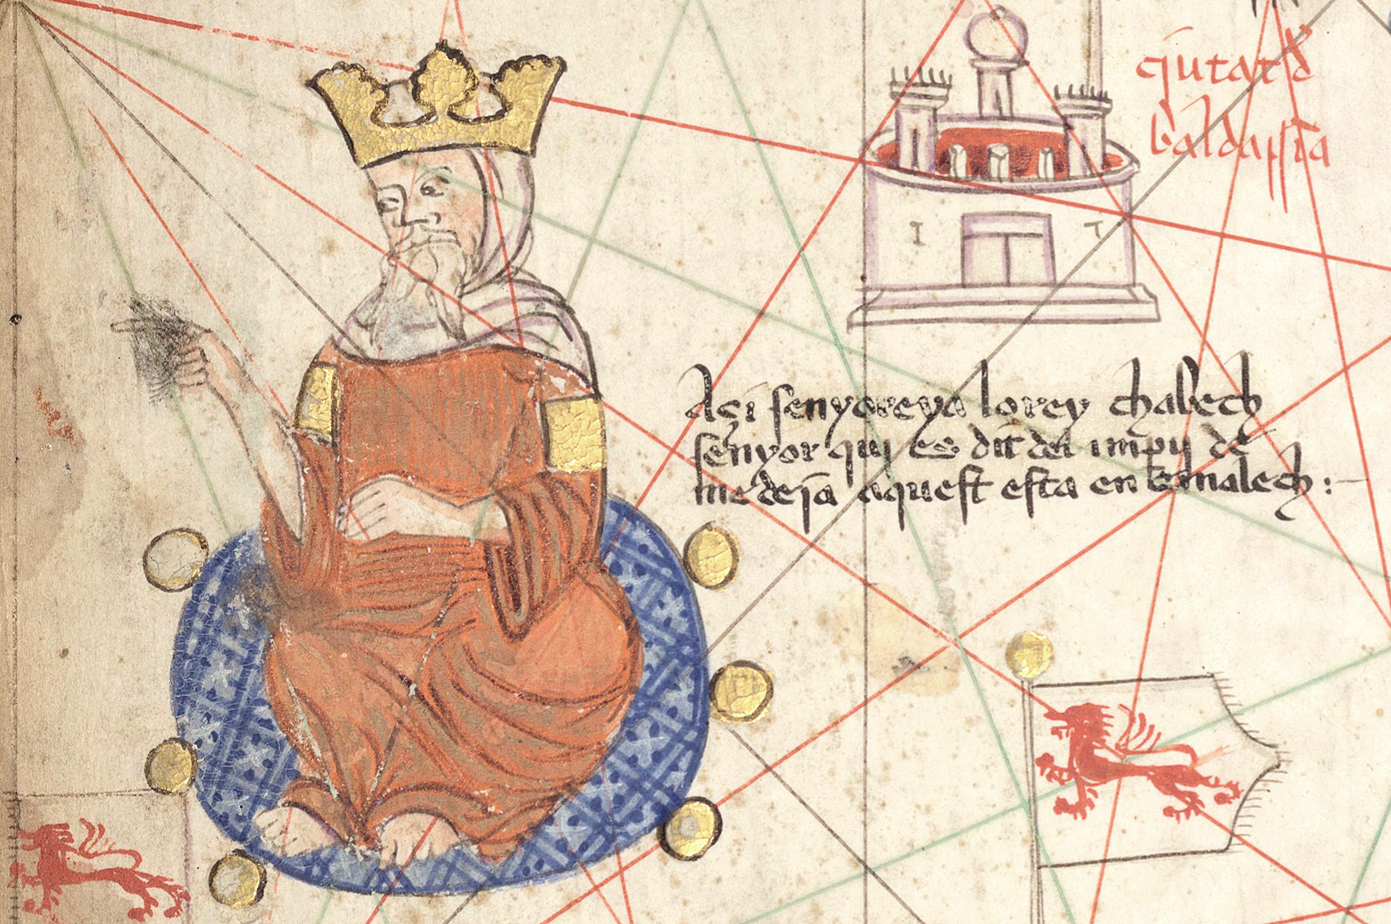 ciutat d
baldassia
Açi senyoreya lo rey chabech
senyor qui es dit del impi de
medeia aquest esta en